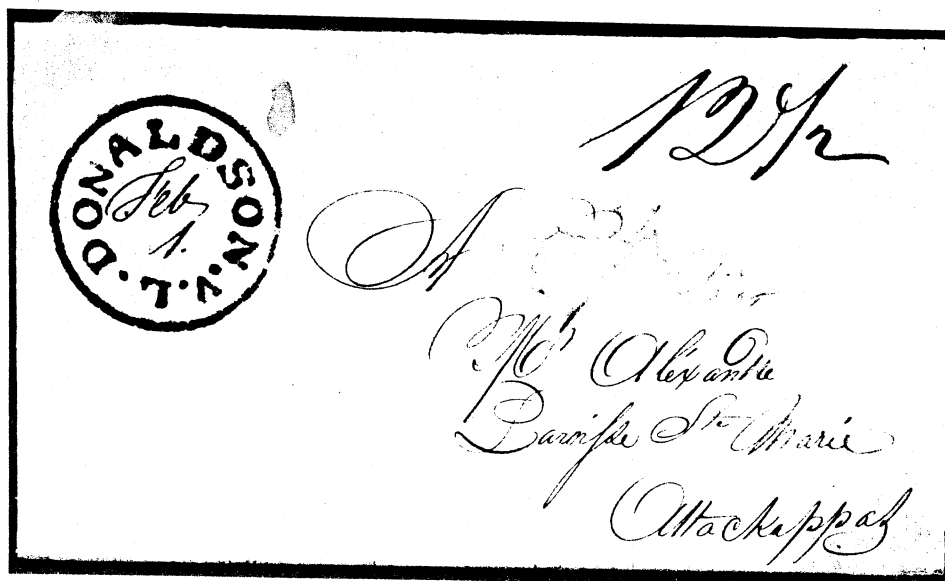 DONALDSON.V.L.
Feb
1.
12 1/2
A
Md Alexandre
Paroisse Ste Marie
Attackappas